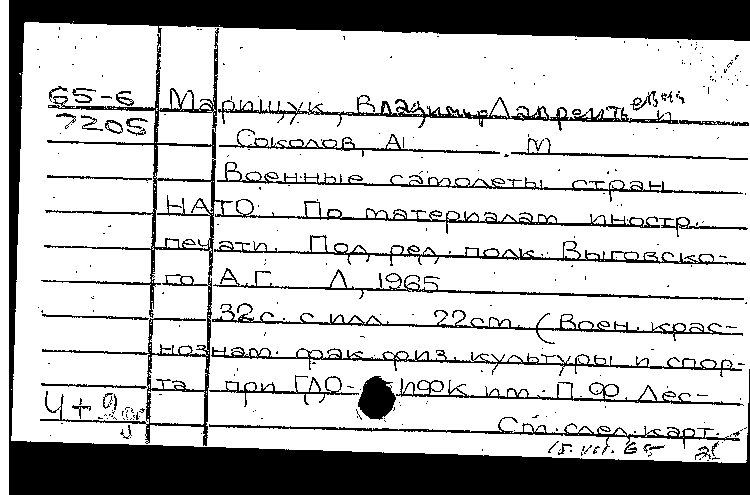 65-6 Марищук, Владимир Лаврентьевич и
7205 Соколов, А . М
Военные самолеты стран
НАТО. По материалам иностр.
печати. Под ред. полк. Выговско-
го А.Г. Л., 1965
32с. с илл. 22см. (Воен. крас-
нознам. фак. физ. культуры и спор-
та при ГДО- ИФК им. П.Ф. Лес-
4+
См. след. карт.
15.VII.65